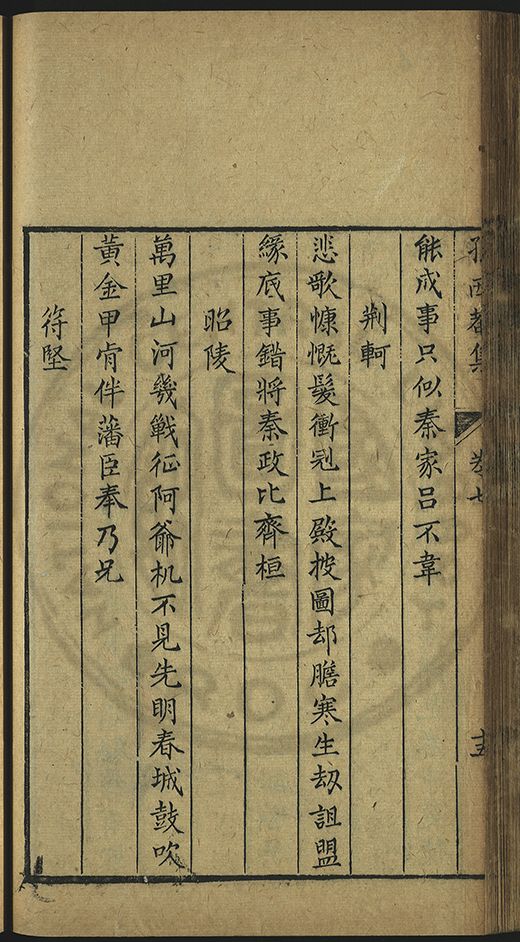 孫西菴集 卷七
能成事只似秦家呂不韋
荆軻
悲歌慷慨髮衝冠上殿披圖却膽寒生刼詛盟
緣底事錯將秦政比齊桓
昭陵
萬里山河幾戰征阿爺机不見先明春城鼓吹
黃金甲肯伴藩臣奉乃兄
符堅